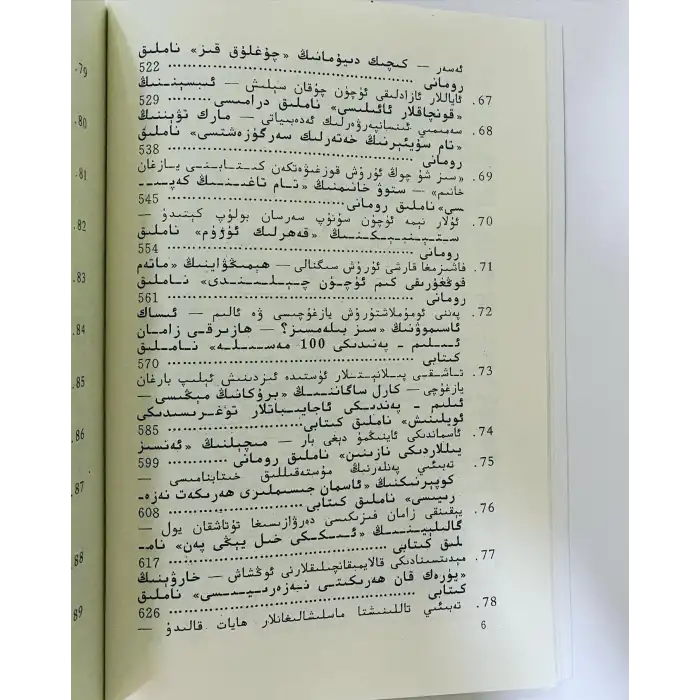 ئەسەر — كىچىك دىيۇمانىڭ «چۇغلۇق قىز» ناملىق
رومانى 522
67. ئاياللار ئازادلىقى ئۈچۈن چۇقان سېلىش — ئىبسېننىڭ
«قونچاقلار ئائىلىسى» ناملىق درامىسى 529
68. سەمىمىي ئىنسانپەرۋەرلىك ئەدەبىياتى — مارك تۋېننىڭ
«تام سۇيېرنىڭ خەتەرلىك سەرگۈزەشتىسى» ناملىق
رومانى 538
69. «سىز شۇ چوڭ ئۇرۇش قوزغىۋەتكەن كىتابنى يازغان
خانىم» — ستوۋ خانىمنىڭ «تام تاغىنىڭ كەپى‍
سى» ناملىق رومانى 545
70. ئۇلار نېمە ئۈچۈن سۇنۇپ سەرسان بولۇپ كېتىدۇ —
ستېينبېكنىڭ «قەھرلىك ئۈزۈم» ناملىق
رومانى 554
71. فاشىزمغا قارشى ئۇرۇش سىگنالى — ھېمىڭۋاينىڭ «ماتەم
قوڭغۇرىقى كىم ئۈچۈن چېلىندى» ناملىق
رومانى 561
72. پەننى ئومۇملاشتۇرۇش يازغۇچىسى ۋە ئالىم — ئىساك
ئاسىموۋنىڭ «سىز بىلەمسىز؟ — ھازىرقى زامان
ئىلىم - پەندىكى 100 مەسىلە» ناملىق
كىتابى 570
73. تاشقى پىلانېتلار ئۈستىدە ئىزدىنىش ئېلىپ بارغان
يازغۇچى — كارل ساگاننىڭ «بروكانىڭ مېڭىسى —
ئىلىم - پەندىكى ئاجايىباتلار توغرىسىدىكى
ئويلىنىش» ناملىق كىتابى 585
74. ئاسماندىكى ئاينىڭمۇ دېغى بار — مىچېلنىڭ «ئەنسىز
يىللاردىكى نازىنىن» ناملىق رومانى 599
75. تەبىئىي پەنلەرنىڭ مۇستەقىللىق خىتابنامىسى —
كوپېرنىكنىڭ «ئاسمان جىسىملىرى ھەرىكەت نەزە-
رىيىسى» ناملىق كىتابى 608
76. يېقىنقى زامان فىزىكىسى دەرۋازىسىغا تۇتاشقان يول —
گالىلېينىڭ «ئىككى خىل يېڭى پەن» نام-
لىق كىتابى 617
77. مېدىتسىنادىكى قالايمىقانچىلىقلارنى ئوڭشاش — خارۋېنىڭ
«يۈرەك قان ھەرىكىتى نىبەزەرىيىسى» ناملىق
كىتابى 626
78. تەبىئىي تاللىنىشتا ماسلىشالىغانلار ھايات قالىدۇ —
6
79.
80.
81.
82.
83.
84.
85.
86.
87.
88
89